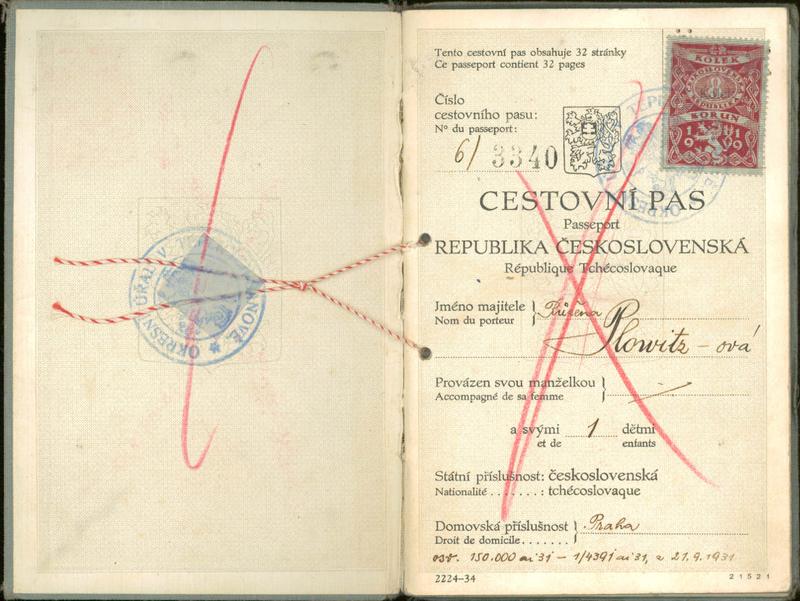 OKRESNÍ ÚŘAD V TEPLICÍCH-ŠANOVĚ
Tento cestovní pas obsahuje 32 stránky
Ce passeport contient 32 pages
KOLEK
KORUN
1919
Číslo
cestovního pasu:
Nº du passeport:
6/ 3340
CESTOVNÍ PAS
Passeport
REPUBLIKA ČESKOSLOVENSKÁ
République Tchécoslovaque
Jméno majitele } Růžena
Nom du porteur
Plowitz - ová
Provázen svou manželkou }
Accompagné de sa femme
a svými 1 dětmi
et de enfants
Státní příslušnost: československá
Nationalité.......: tchécoslovaque
Domovská příslušnost } Praha
Droit de domicile.......
osv. 150.000 ai 31 – 1/4391 ai 31, z 21.9.1931
2224-34
21521